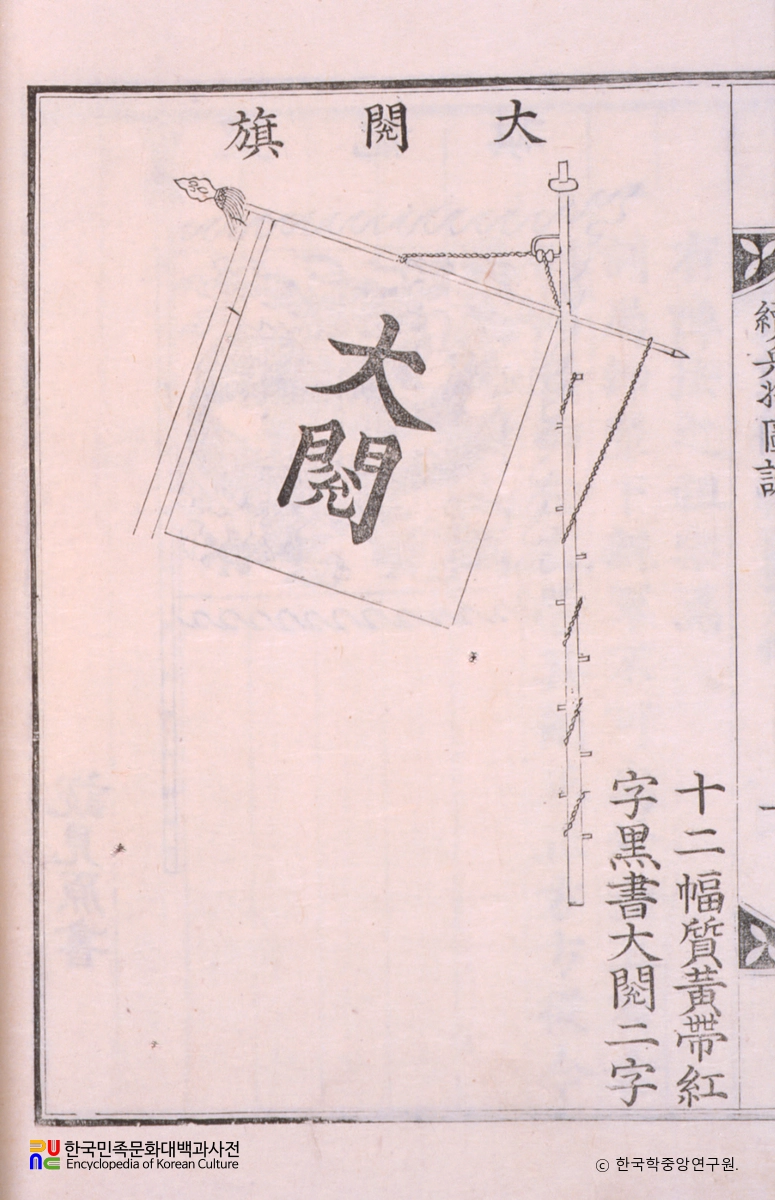 大閱旗
大閱
十二幅質黃帶紅
字黑書大閱二字
續兵將圖說
한국민족문화대백과사전
Encyclopedia of Korean Culture
© 한국학중앙연구원.